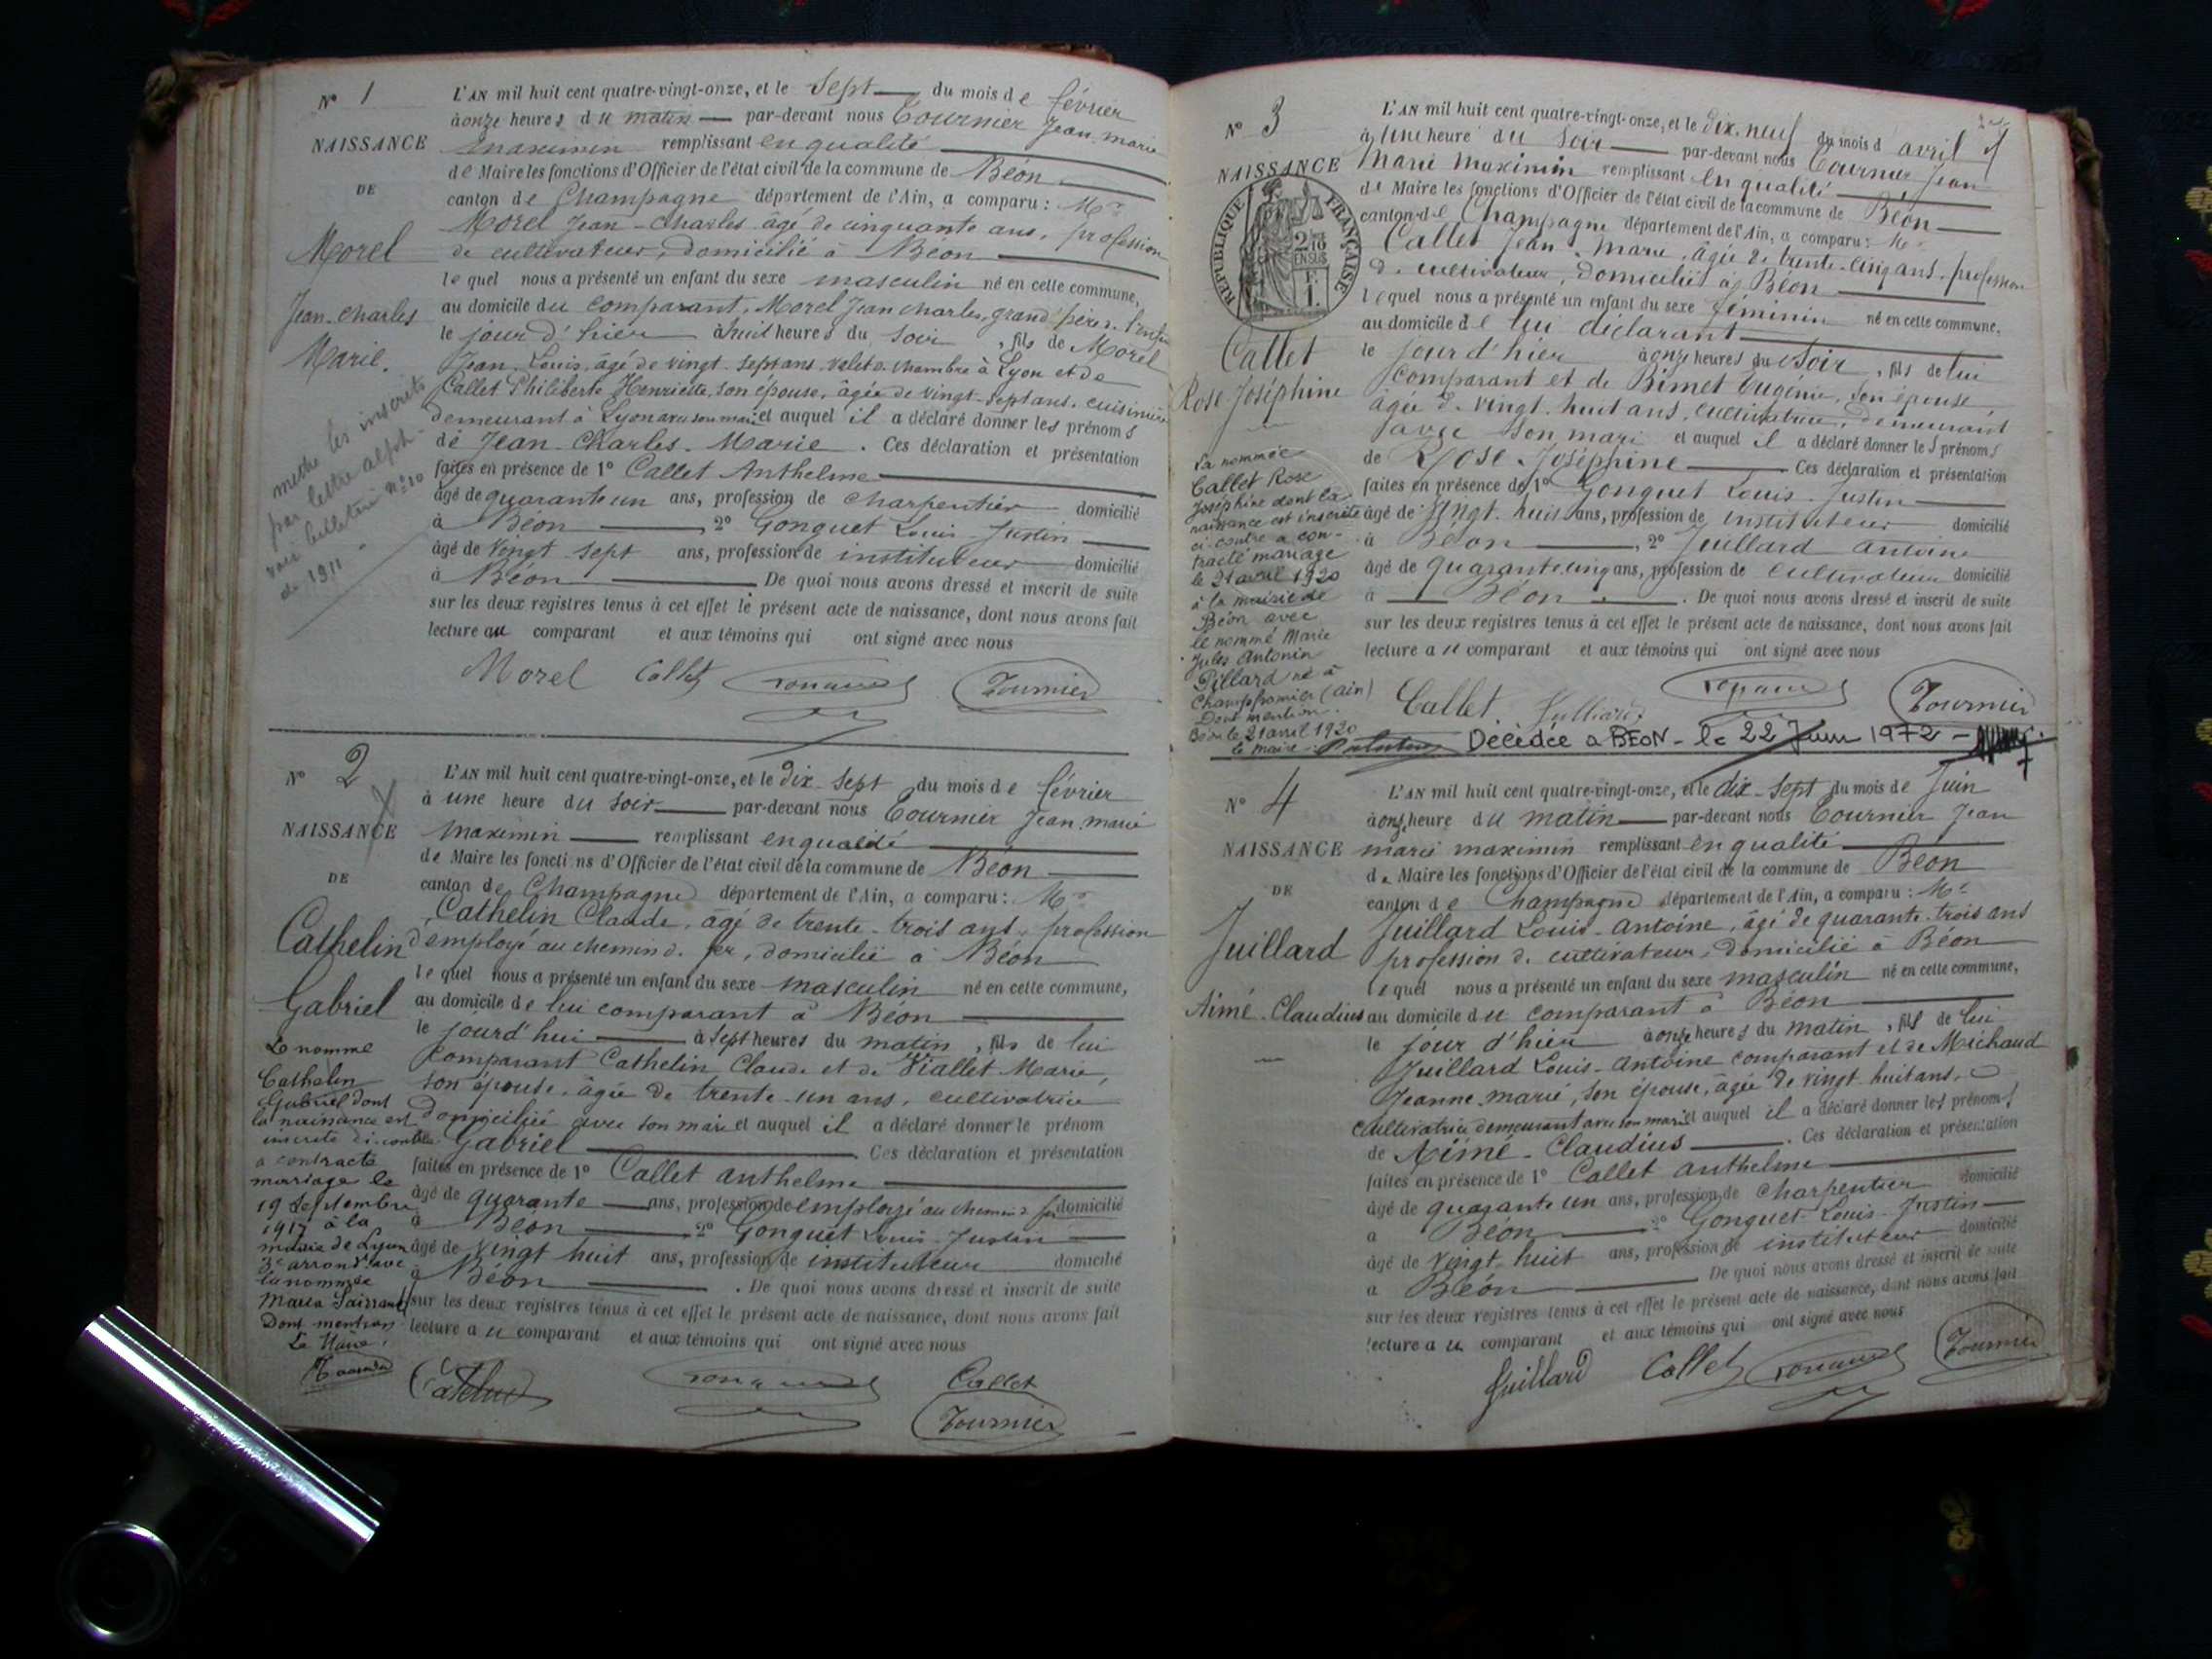 N° 1
NAISSANCE
DE
Morel
Jean-Charles
Marie.
mettre les inscrits
par lettre alph.
voir bulletin n° 20
de 1911
L'AN mil huit cent quatre-vingt-onze, et le Sept du mois de février
à onze heures du matin par-devant nous Tournier Jean-marie
maximin remplissant en qualité
de Maire les fonctions d'Officier de l'état civil de la commune de Béon
canton de Champagne département de l'Ain, a comparu : Mr
Morel Jean-Charles âgé de cinquante ans, profession
de cultivateur, domicilié à Béon
lequel nous a présenté un enfant du sexe masculin né en cette commune,
au domicile du comparant, Morel Jean Charles, grand'père de l'enfant
le jour d'hier à huit heures du soir, fils de Morel
Jean Louis, âgé de vingt-sept ans, valet de chambre à Lyon et de
Callet Philiberte Henriette, son épouse, âgée de vingt-sept ans, cuisinière
demeurant à Lyon avec son mari et auquel il a déclaré donner les prénoms
de Jean-Charles-Marie. Ces déclaration et présentation
faites en présence de 1° Callet Anthelme
âgé de quarante un ans, profession de charpentier domicilié
à Béon, 2° Gonguet Louis-Justin
âgé de vingt-sept ans, profession de instituteur domicilié
à Béon De quoi nous avons dressé et inscrit de suite
sur les deux registres tenus à cet effet le présent acte de naissance, dont nous avons fait
lecture au comparant et aux témoins qui ont signé avec nous
Morel Callet Tournier
N° 2
NAISSANCE
DE
Cathelin
Gabriel
Le nommé
Cathelin
Gabriel dont
la naissance est
inscrite ci-contre
a contracté
mariage le
19 Septembre
1917 à la
mairie de Lyon
3e arrondt avec
la nommée
Dont mention
Le Maire,
L'AN mil huit cent quatre-vingt-onze, et le dix-sept du mois de février
à une heure du soir par-devant nous Tournier Jean-marie
maximin remplissant en qualité
de Maire les fonctions d'Officier de l'état civil de la commune de Béon
canton de Champagne département de l'Ain, a comparu : Mr
Cathelin Claude, âgé de trente-trois ans, profession
d'employé au chemin de fer, domicilié à Béon
lequel nous a présenté un enfant du sexe masculin né en cette commune,
au domicile de lui comparant à Béon
le jourd'hui à sept heures du matin, fils de lui
comparant Cathelin Claude et de Viallet Marie,
son épouse, âgée de trente-un ans, cultivatrice
domiciliée avec son mari et auquel il a déclaré donner le prénom
Gabriel Ces déclaration et présentation
faites en présence de 1° Callet anthelme
âgé de quarante ans, profession de employé au chemin de fer domicilié
à Béon 2° Gonguet Louis-Justin
âgé de vingt huit ans, profession de instituteur domicilié
à Béon. De quoi nous avons dressé et inscrit de suite
sur les deux registres tenus à cet effet le présent acte de naissance, dont nous avons fait
lecture au comparant et aux témoins qui ont signé avec nous
Cathelin Callet
Tournier
N° 3
NAISSANCE
RÉPUBLIQUE FRANÇAISE
2/10 EN SUS
Callet
Rose Joséphine
La nommée
Callet Rose
Joséphine dont la
naissance est inscrite
ci-contre a con-
tracté mariage
le 21 avril 1920
à la mairie de
Béon avec
le nommé Marie
Jules Antonin
Pillard né à
Champfromier (ain)
Dont mention.
Béon le 21 avril 1920
Le maire
L'AN mil huit cent quatre-vingt-onze, et le dix-neuf du mois d'avril
à une heure du soir par-devant nous Tournier Jean
Marie Maximin remplissant en qualité
de Maire les fonctions d'Officier de l'état civil de la commune de Béon
canton de Champagne département de l'Ain, a comparu : Mr
Callet Jean-Marie, âgé de trente-cinq ans, profession
de cultivateur, domicilié à Béon
lequel nous a présenté un enfant du sexe féminin né en cette commune,
au domicile de lui déclarant
le jour d'hier à onze heures du soir, fils de lui
comparant et de Bimet Eugénie, son épouse,
âgée de vingt-huit ans, cultivatrice, demeurant
avec son mari et auquel il a déclaré donner les prénoms
de Rose-Joséphine Ces déclaration et présentation
faites en présence de 1° Gonguet Louis-Justin
âgé de vingt-huit ans, profession de instituteur domicilié
à Béon, 2° Juillard antoine
âgé de quarante cinq ans, profession de cultivateur domicilié
à Béon. De quoi nous avons dressé et inscrit de suite
sur les deux registres tenus à cet effet le présent acte de naissance, dont nous avons fait
lecture au comparant et aux témoins qui ont signé avec nous
Callet Juillard Tournier
Décédée à BEON - le 22 Juin 1972 -
N° 4
NAISSANCE
DE
Juillard
Aimé-Claudius
L'AN mil huit cent quatre-vingt-onze, et le dix-sept du mois de Juin
à onze heure du matin par-devant nous Tournier Jean
marie maximin remplissant en qualité
de Maire les fonctions d'Officier de l'état civil de la commune de Béon
canton de Champagne département de l'Ain, a comparu : Mr
Juillard Louis-Antoine, âgé de quarante-trois ans
profession de cultivateur, domicilié à Béon
lequel nous a présenté un enfant du sexe masculin né en cette commune,
au domicile du comparant à Béon
le jour d'hier à onze heures du matin, fils de lui
Juillard Louis-Antoine comparant et de Michaud
Jeanne-marie, son épouse, âgée de vingt-huit ans,
cultivatrice demeurant avec son mari et auquel il a déclaré donner les prénoms
de Aimé-Claudius. Ces déclaration et présentation
faites en présence de 1° Callet anthelme
âgé de quarante un ans, profession de charpentier domicilié
à Béon 2° Gonguet Louis-Justin
âgé de vingt-huit ans, profession de instituteur domicilié
à Béon De quoi nous avons dressé et inscrit de suite
sur les deux registres tenus à cet effet le présent acte de naissance, dont nous avons fait
lecture au comparant et aux témoins qui ont signé avec nous
Juillard Callet Tournier